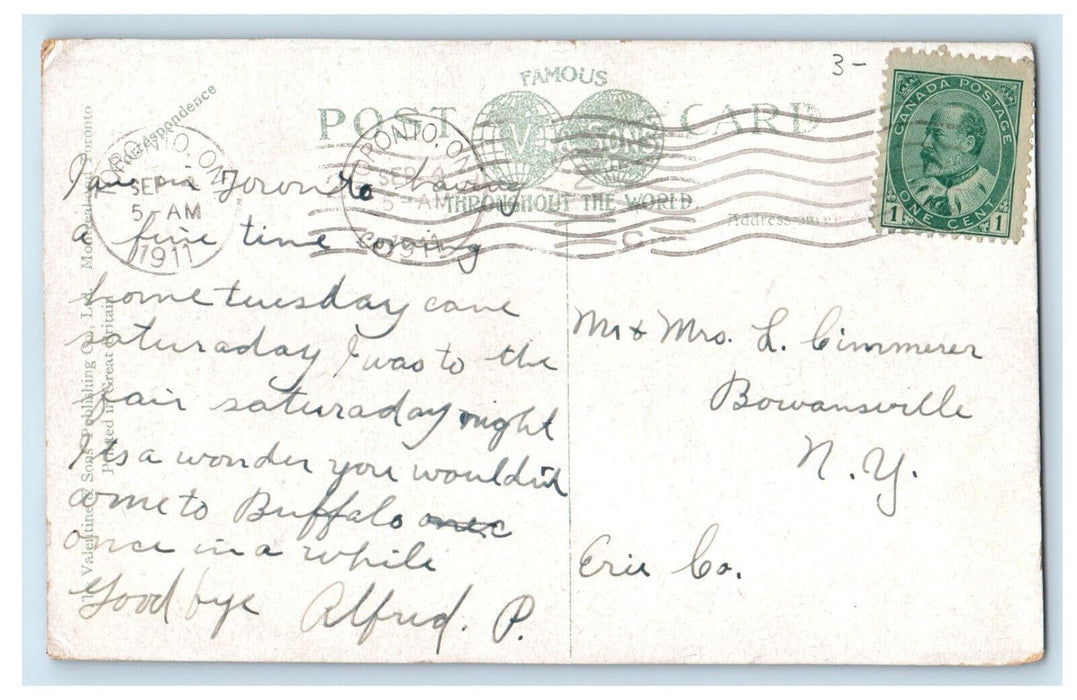 3-
FAMOUS
POST CARD
V & SONS
THROUGHOUT THE WORLD.
CANADA POSTAGE
ONE CENT
1 1
TORONTO, ONT
SEP 4
5-AM
1911
TORONTO, ONT
SEP 4
5-AM
1911
2
C
Correspondence
Address
The Valentine & Sons' Publishing Co., Ltd. Montreal and Toronto
Printed in Great Britain
I am in Toronto having
a fine time coming
home tuesday came
saturaday I was to the
fair saturaday night
Its a wonder you wouldnt
come to Buffalo
once in a while
Good bye Alfred. P.
Mr & Mrs. L. Cimmerer
Bowansville
N. Y.
Erie Co.